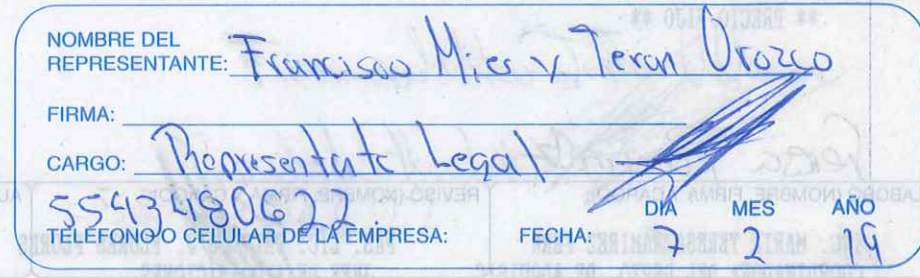 ** PRECIO FIJO **
NOMBRE DEL
REPRESENTANTE: Francisco Mier y Teran Orozco
FIRMA:
CARGO: Representante Legal
5543480622
TELÉFONO O CELULAR DE LA EMPRESA:
FECHA: DIA MES AÑO
7 2 19